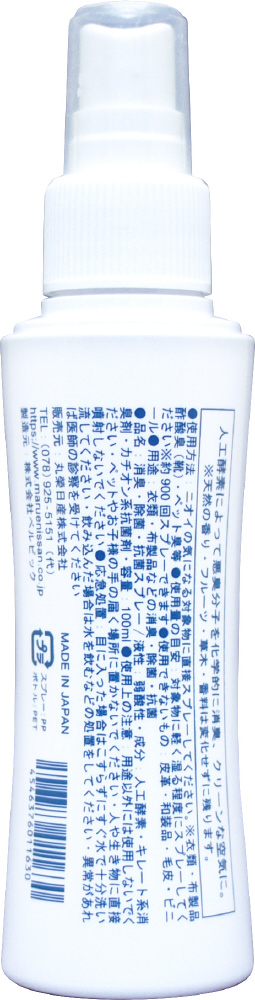 人工酵素によって悪臭分子を化学的に消臭、クリーンな空気に。
※天然の香り・フルーツ・草木・香料は変化せずに残ります。
●使用方法：ニオイの気になる対象物に直接スプレーしてください。※衣類・布製品
酢酸臭（靴）・ペット臭等 ●使用量の目安：対象物に軽く湿る程度にスプレーしてく
ださい※約900回スプレーできます●使用できないもの：皮革・和装品・毛皮・ビニ
ール●用途：衣類・布製品などの消臭・除菌・抗菌
●品名：消臭・除菌・抗菌スプレー／液性：弱酸性・成分：人工酵素・キレート系消
臭剤・カチオン系抗菌剤・内容量：100ml ●使用上の注意：用途以外には使用しないでく
ださい・ペットやお子様の手の届く場所に置かないでください・人や生き物に直接
噴射しないでください ●応急処置：目に入った場合はこすらずにすぐ水で十分洗い
流してください・飲み込んだ場合は水を飲むなどの処置をしてください・異常があれ
ば医師の診察を受けてください
販売元：丸榮日産株式会社
TEL：(078)925-5151（代）
https://www.maruenissan.co.jp
製造元：株式会社ベルビック
MADE IN JAPAN
プラ
スプレー：PP
ボトル：PET
4546376011630